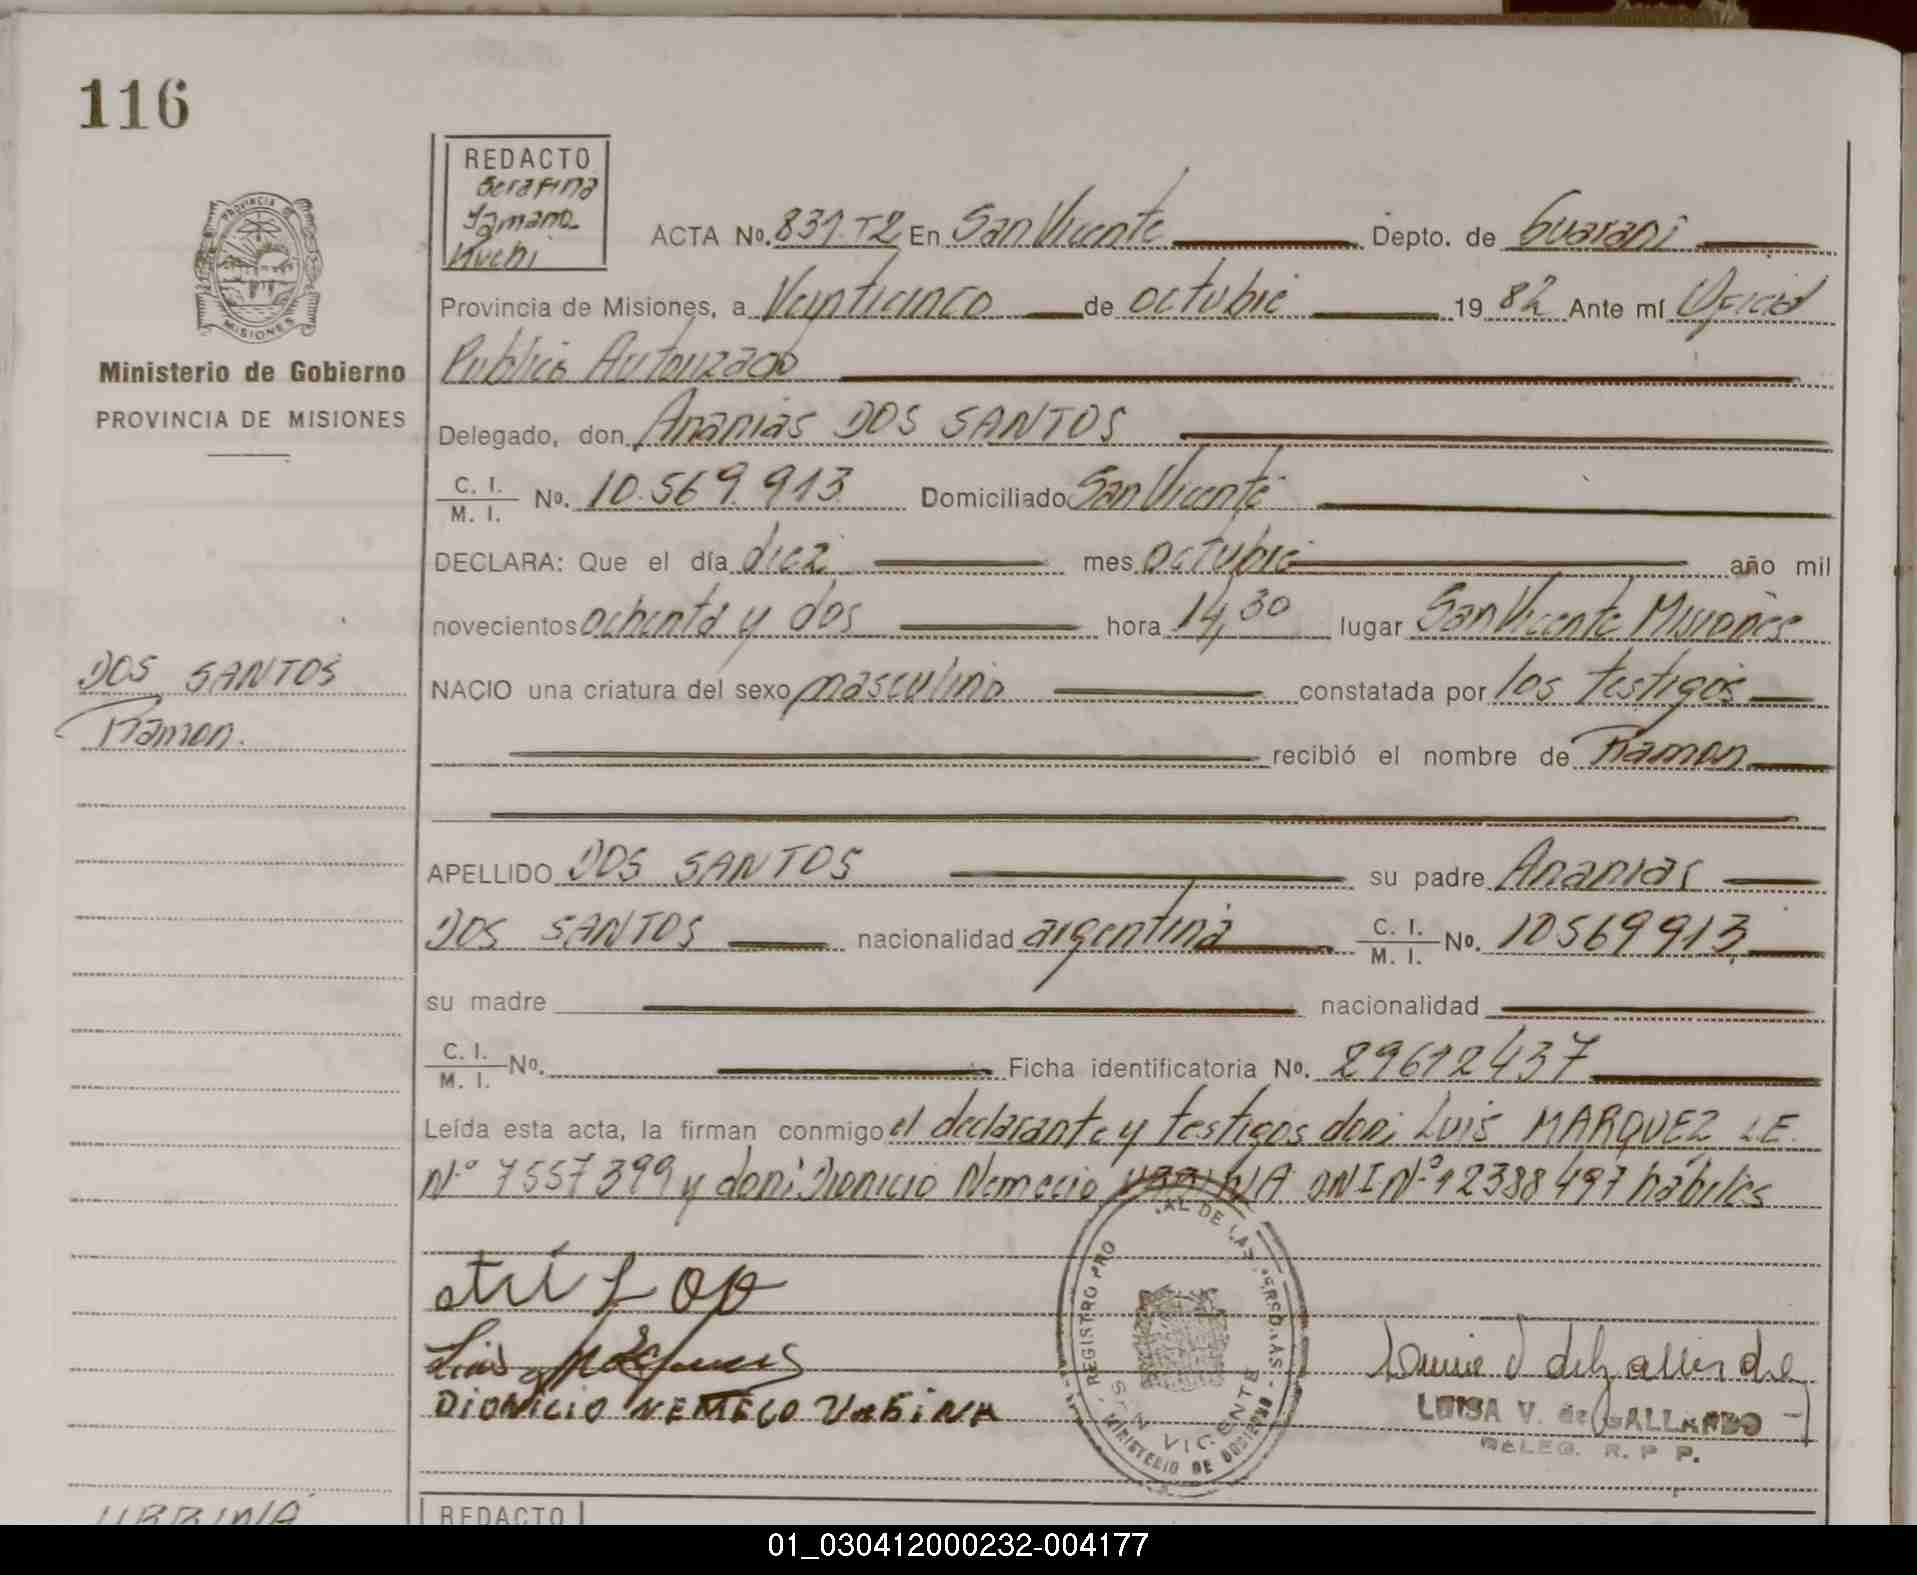 116
REDACTO
Serafina
Kuchi
PROVINCIA DE
MISIONES
Ministerio de Gobierno
PROVINCIA DE MISIONES
ACTA No. 831-T2 En San Vicente Depto. de Guarani
Provincia de Misiones, a Veinticinco de octubre 1982 Ante mí Oficial
Publico Autorizado
Delegado, don Ananias DOS SANTOS
C. I. / M. I. No. 10.569.913 Domiciliado San Vicente
DECLARA: Que el día diez mes octubre año mil
novecientos ochenta y dos hora 14,30 lugar San Vicente Misiones
DOS SANTOS
Ramon.
NACIO una criatura del sexo masculino constatada por los testigos
recibió el nombre de Ramon
APELLIDO DOS SANTOS su padre Ananias
DOS SANTOS nacionalidad argentina C. I. / M. I. No. 10569913
su madre nacionalidad
C. I. / M. I. No. Ficha identificatoria No. 29612437
Leída esta acta, la firman conmigo el declarante y testigos don: Luis MARQUEZ LE.
N° 7557399 y don: Dionicio Nemecio URBINA DNI N° 12388497 hábiles
Luis
DIONICIO NEMECO URBINA
REGISTRO PRO AL DE LAS PERSONAS
SAN VICENTE
MINISTERIO DE GOBIERNO
LUISA V. de GALLARDO
DELEG. R. P. P.
URBINA
REDACTO
01_030412000232-004177